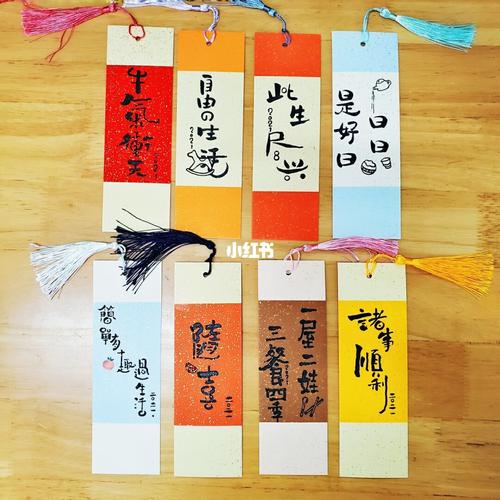 牛氣衝天
2021
自由の生活
2021
此生
2021
尽兴
日日
是好日
小红书
簡單有
趣
過生活
2021
隨喜
二〇二一
一屋二
三餐四季
諸事
順利
二〇二一